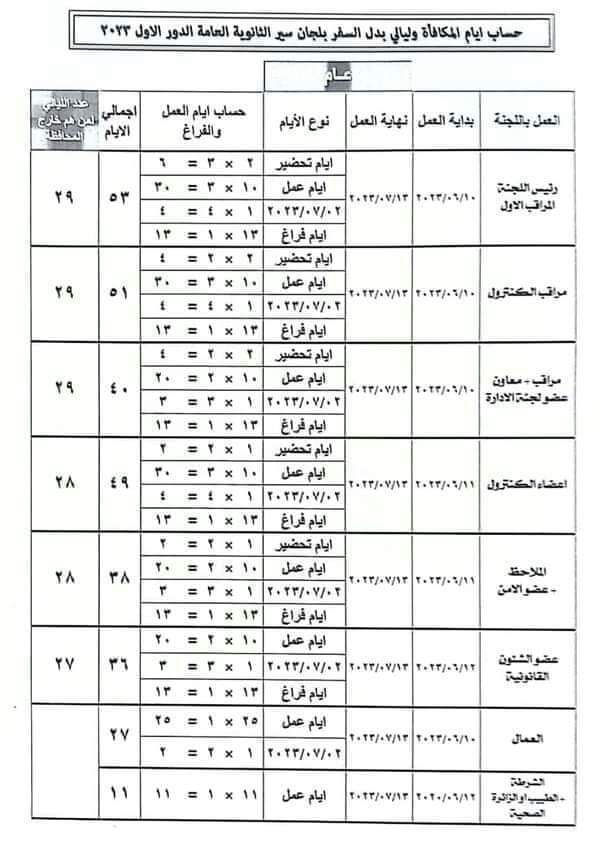 حساب ايام المكافأة وليالي بدل السفر بلجان سير الثانوية العامة الدور الاول ٢٠٢٣
عام
العمل باللجنة بداية العمل نهاية العمل نوع الأيام حساب ايام العمل والفراغ اجمالي الايام عدد الليالي لمن هم خارج المحافظة
رئيس اللجنة
المراقب الاول
٢٠٢٣/٠٦/١٠ ٢٠٢٣/٠٧/١٣
ايام تحضير ٢ × ٣ = ٦
ايام عمل ١٠ × ٣ = ٣٠
٢٠٢٣/٠٧/٠٢ ١ × ٤ = ٤
ايام فراغ ١٣ × ١ = ١٣
٥٣ ٢٩
مراقب الكنترول
٢٠٢٣/٠٦/١٠ ٢٠٢٣/٠٧/١٣
ايام تحضير ٢ × ٢ = ٤
ايام عمل ١٠ × ٣ = ٣٠
٢٠٢٣/٠٧/٠٢ ١ × ٤ = ٤
ايام فراغ ١٣ × ١ = ١٣
٥١ ٢٩
مراقب - معاون
عضو لجنة الادارة
٢٠٢٣/٠٦/١٠ ٢٠٢٣/٠٧/١٣
ايام تحضير ٢ × ٢ = ٤
ايام عمل ١٠ × ٢ = ٢٠
٢٠٢٣/٠٧/٠٢ ١ × ٣ = ٣
ايام فراغ ١٣ × ١ = ١٣
٤٠ ٢٩
اعضاء الكنترول
٢٠٢٣/٠٦/١١ ٢٠٢٣/٠٧/١٣
ايام تحضير ١ × ٢ = ٢
ايام عمل ١٠ × ٣ = ٣٠
٢٠٢٣/٠٧/٠٢ ١ × ٤ = ٤
ايام فراغ ١٣ × ١ = ١٣
٤٩ ٢٨
الملاحظ
- عضو الامن
٢٠٢٣/٠٦/١١ ٢٠٢٣/٠٧/١٣
ايام تحضير ١ × ٢ = ٢
ايام عمل ١٠ × ٢ = ٢٠
٢٠٢٣/٠٧/٠٢ ١ × ٣ = ٣
ايام فراغ ١٣ × ١ = ١٣
٣٨ ٢٨
عضو الشئون
القانونية
٢٠٢٣/٠٦/١٢ ٢٠٢٣/٠٧/١٣
ايام عمل ١٠ × ٢ = ٢٠
٢٠٢٣/٠٧/٠٢ ١ × ٣ = ٣
ايام فراغ ١٣ × ١ = ١٣
٣٦ ٢٧
العمال
٢٠٢٣/٠٦/١٠ ٢٠٢٣/٠٧/١٣
ايام عمل ٢٥ × ١ = ٢٥
٢٠٢٣/٠٧/٠٢ ١ × ٢ = ٢
٢٧
الشرطة
- الطبيب او الزائرة
الصحية
٢٠٢٠/٠٦/١٢ ٢٠٢٣/٠٧/١٣
ايام عمل ١١ × ١ = ١١
١١